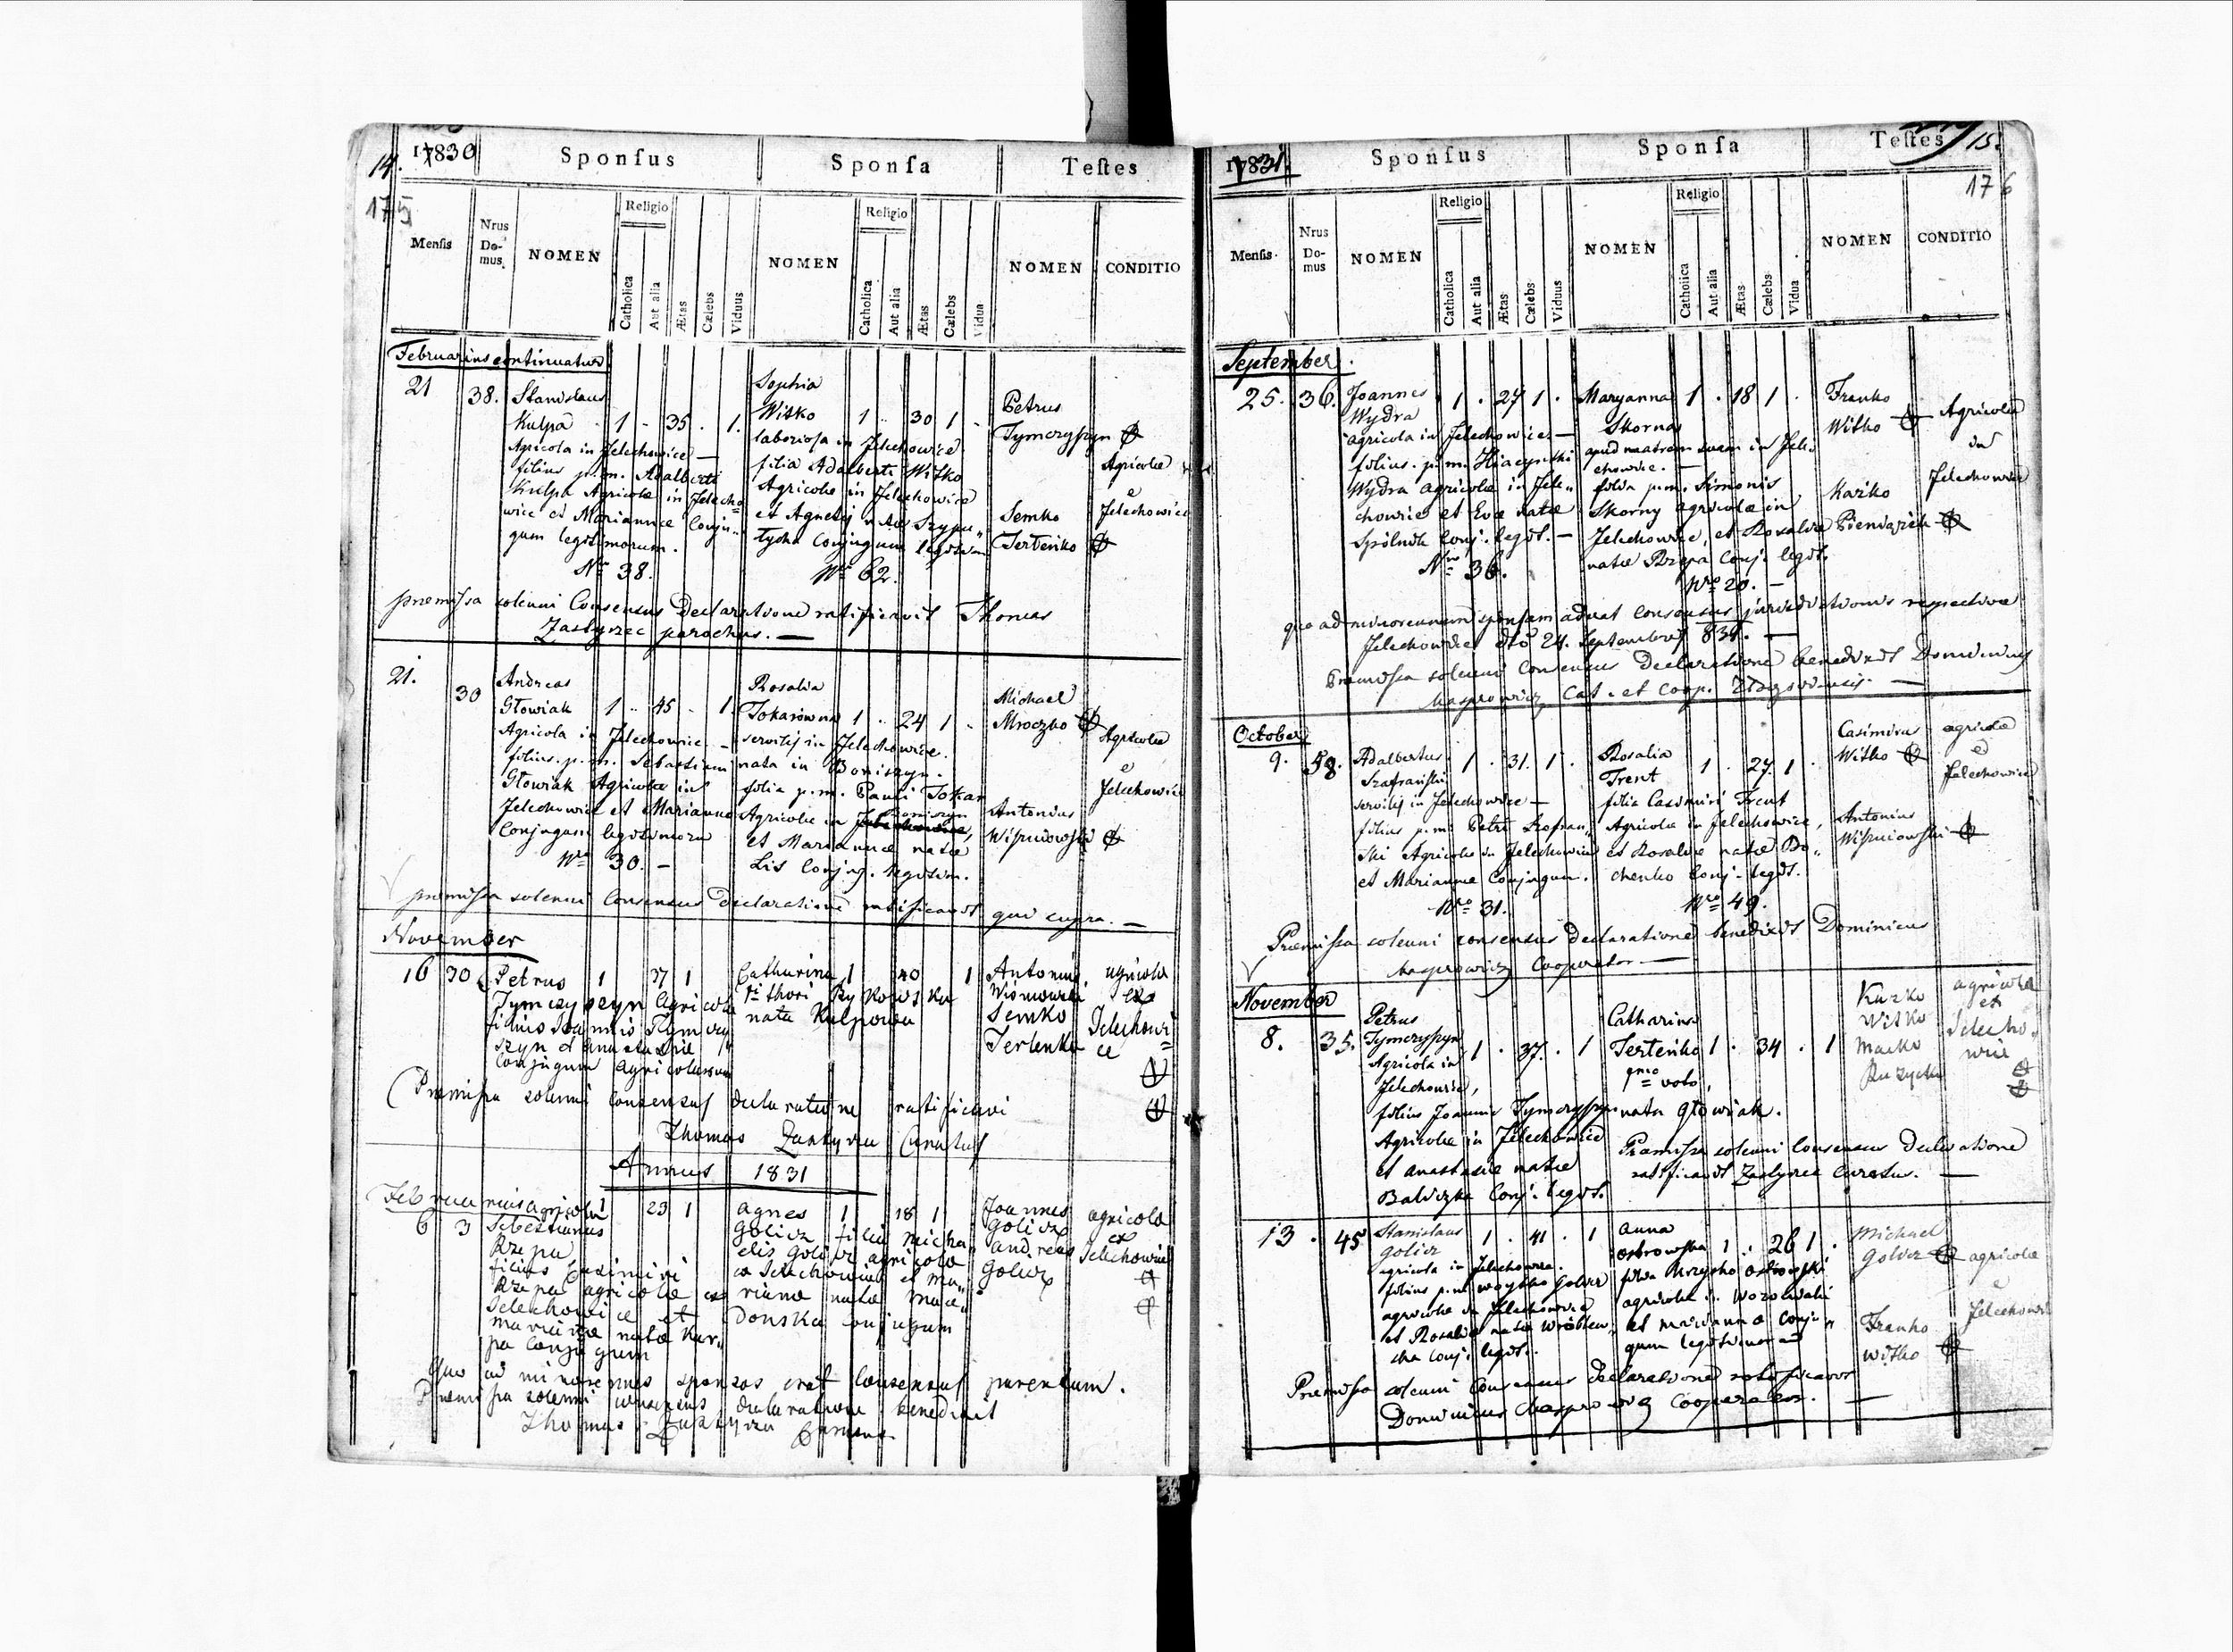 14.
1830
Sponsus
Sponsa
Testes
175
Mensis
Nrus Domus.
NOMEN
Religio
Catholica
Aut alia
Ætas
Cælebs
Viduus
NOMEN
Religio
Catholica
Aut alia
Ætas
Cælebs
Vidua
NOMEN
CONDITIO
Februarius continuatur
21 38. Stanislaus
Kulpa 1 - 35 . 1.
Agricola in Jelechowice —
filius p.m. Adalberti
Kulpa Agricolæ in Jelecho=
wice et Mariannæ Conju-
gum legitimorum.
Nro 38.
Sophia
Witko 1 .. 30 1 -
laboriosa in Jelechowice
filia Adalberti Witko
Agricolæ in Jelechowice
et Agnetis natæ Szypu-
lycha Conjugum legitim.
Nro 62.
Petrus
Tymczyszyn
Semko
Terteńko
Agricolæ
e
Jelechowice
præmissa solenni Consensus Declaratione ratificavit Thomas
Zastyrzec parochus. —
21.
30
Andreas
Głowiak 1 .. 45 - 1.
Agricola in Jelechowice —
filius p.m. Sebastiani
Głowiak Agricolæ in
Jelechowice et Mariannæ
Conjugum legitimorum
Nro 30. —
Rosalia
Tokarówna 1 .. 24 1 -
servilis in Jelechowice.
nata in Boniszyn.
filia p.m. Pauli Tokar
Agricolæ in Boniszyn
et Mariannæ natæ
Lis Conjug. legitim.
Michael
Mroczko
Antonius
Wiśniowski
Agricolæ
e
Jelechowice
præmissa solenni Consensus Declaratione ratificavit qui supra. —
November
16 30 Petrus 1 37 1
Tymczyszyn Agricola
filius Joannis Tymczy
szyn et Anastasiæ
Conjugum Agricolarum
Catharina 1 40 1
1i thori Rykowska
nata Kulpowa
Antonius
Wisniowski
Semko
Terlenko
agricolæ
ex
Jelechowi=
ce
Premissa solenni consensus declaratione ratificavi
Thomas Curatus
Annus 1831
Februarius agricola 1 23 1
6 3 Sebestianus
Rzepa
filius Casimiri
Rzepa agricolæ ex
Jelechowice et
mariæ natæ Kar-
pa Conjugum
agnes 1 18 1
Golicz filia Micha
elis Golicz agricolæ
ex Jelechowice et Ma-
rianæ natæ Mace-
donska conjugum
Joannes
Golicz
andreas
Golicz
agricolæ
ex
Jelechowice
Quo ad minorennes sponsos erat Consensus parentum.
Premissa solenni consensus declaratione benedixit
Thomas
1831.
Sponsus
Sponsa
Testes
15.
176
Mensis.
Nrus Domus
NOMEN
Religio
Catholica
Aut alia
Ætas
Cælebs
Viduus
NOMEN
Religio
Catholica
Aut alia
Ætas
Cælebs
Vidua
NOMEN
CONDITIO
September.
25. 36. Joannes 1 . 27 1 .
Wydra
agricola in Jelechowice. —
filius p.m. Hiacynthi
Wydra agricolæ in Jele-
chowice et Evæ natæ
Spólnik Conj. legit. —
Nro 36.
Maryanna 1 . 18 1 .
Skorna
apud matrem suam in Jele-
chowice. —
filia p.m. Simonis
Skorny agricolæ in
Jelechowice, et Rosaliæ
natæ Rzepa Conj. legit.
Nro 20. —
Franko
Witko
Kaźko
Pieniążek
Agricolæ
in
Jelechowice
quo ad minorennem sponsam aderat Consensus jurisdictionis respectivæ
Jelechowice dto 24. Septembris 831. —
Præmissa solenni Consensus Declaratione benedixit Dominicus
Kasprowicz Cat. et Coop. —
October
9. 58. Adalbertus 1 . 31. 1 .
Szafrański
servilis in Jelechowice —
filius p.m. Petri Szafran-
ski Agricolæ in Jelechowice
et Mariannæ Conjugum.
Nro 31.
Rosalia
Trent 1 . 27. 1 .
filia Casimiri Trent
Agricolæ in Jelechowice,
et Rosaliæ natæ Bo-
chenko Conj. legit.
Nro 49.
Casimirus
Witko
Antonius
Wiśniowski
agricolæ
e
Jelechowice
Præmissa solenni consensus declaratione benedixit Dominicus
Kasprowicz Cooperator —
November
8. 35. Petrus
Tymczyszyn 1 . 37. . 1
Agricola in
Jelechowice,
filius Joannis Tymczyszyn
Agricolæ in Jelechowice
et anastasiæ natæ
Baliczka Conj. legit.
Catharina
Terteńko 1 . 34 . 1
1mo voto,
nata Głowiak.
Kazko
Witko
Macko
Ruzycki
agricolæ
ex
Jelecho
wice
Præmissa solenni Consensus Declaratione
ratificavit Zastyrzec Curatus. —
13 . 45 Stanislaus 1 . 41 . 1
Golicz
agricola in Jelechowice.
filius p.m. Woytko Golicz
agricolæ in Jelechowice
et Rosaliæ natæ Wróblew-
cka Conj. legit.
Anna
Ostrowska 1 . 26 1 .
filia Krzysko Ostrowski
agricolæ in
et Mariannæ Conju-
gum legitimorum
Michael
Golicz
Franko
Witko
agricolæ
e
Jelechowice
Præmissa solenni Consensus Declaratione ratificavit
Dominicus Kasprowicz Cooperator. —